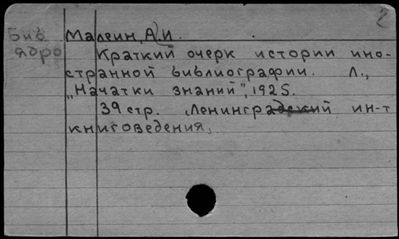 2
Биб Малеин, А. И.
ядро Краткий очерк истории ино-
странной библиографии. Л.,
„Начатки знаний", 1925.
39 стр. Ленинградский ин-т
книговедения.